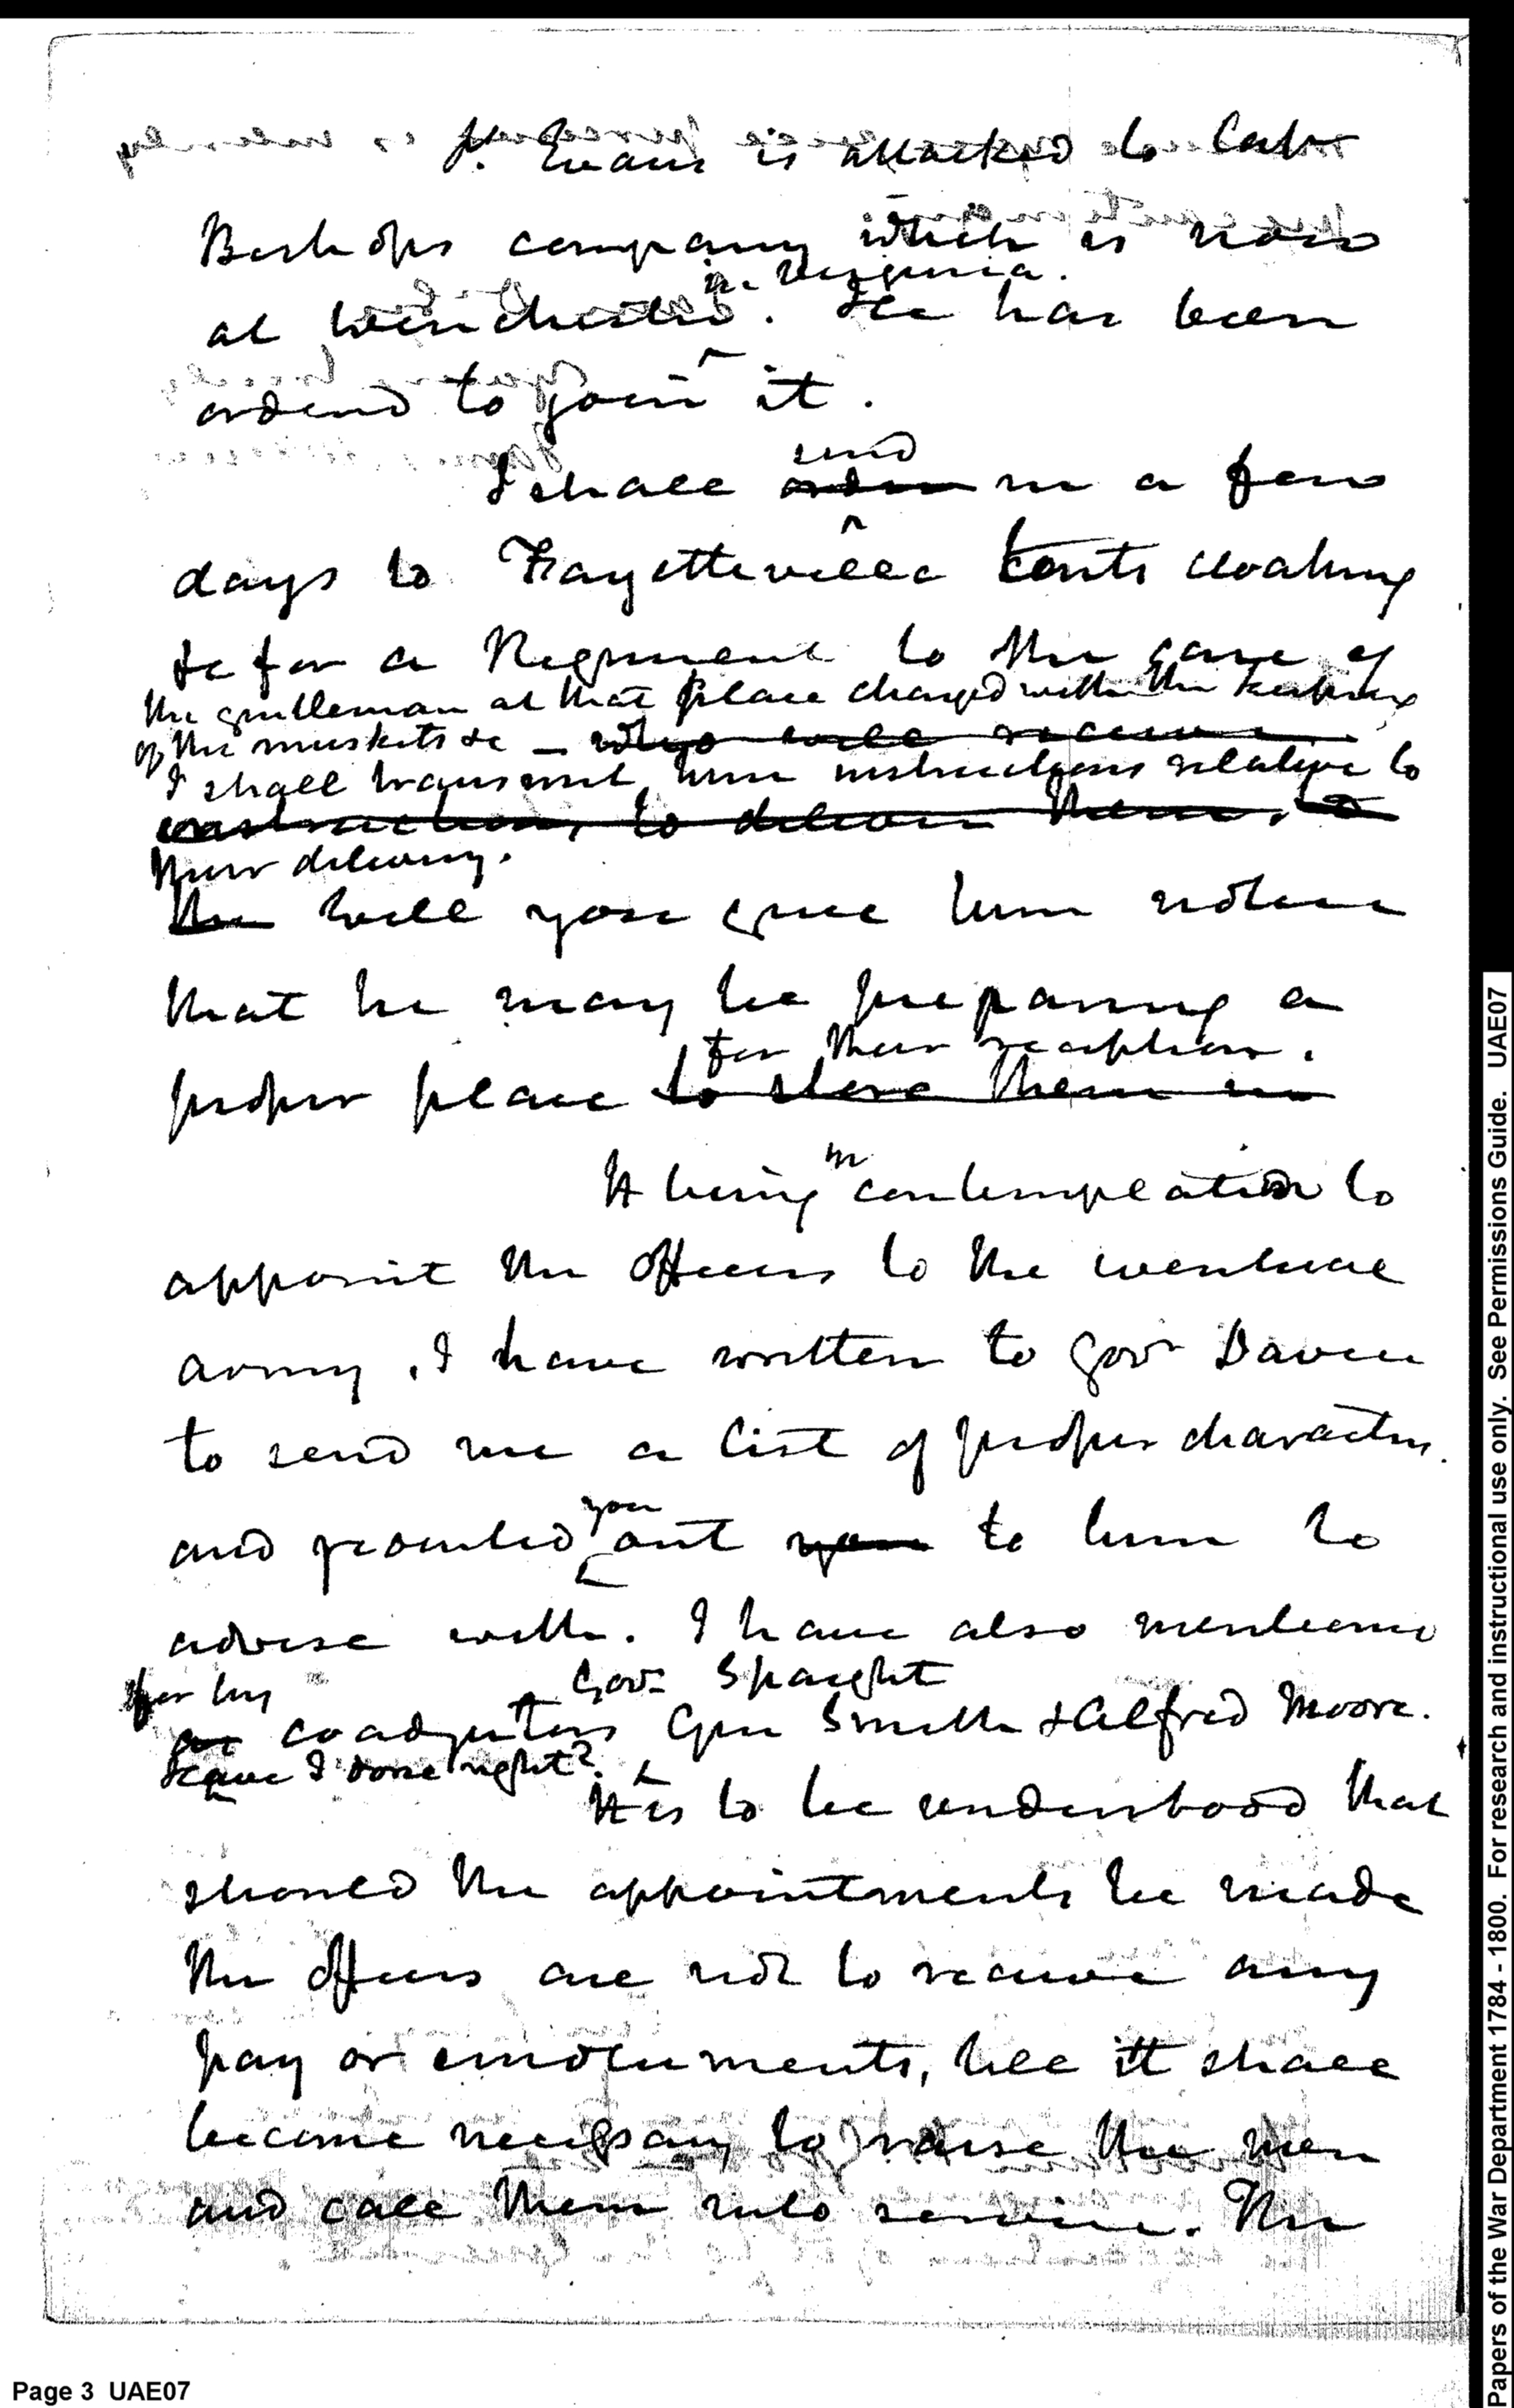 Evans is attached to Capt
Bishops company which is now
in Virginia.
at Winchester. He has been
ordered to join it.
send
I shall order in a few
days to Fayetteville tents cloathing
&c for a Regiment to the care of
the gentleman at that place charged with the keeping
of the muskets &c – who will receive
I shall transmit him instructions relative to
instructions, to deliver them, to
their delivery.
the will you give him notice
that he may be preparing a
for their reception.
proper place to store them in
in
It being contemplation to
appoint the officers to the eventual
army, I have written to Govr Davie
to send me a list of proper characters.
you
and pointed out you to him to
advise with. I have also mentioned
for his Govr Spaight
as coadjutors Gen Smith & Alfred Moore.
Have I done right?
It is to be understood that
should the appointments be made
the officers are not to receive any
pay or emoluments, till it shall
become necessary to raise the men
and call them into service. The
Page 3 UAE07
Papers of the War Department 1784 - 1800. For research and instructional use only. See Permissions Guide. UAE07